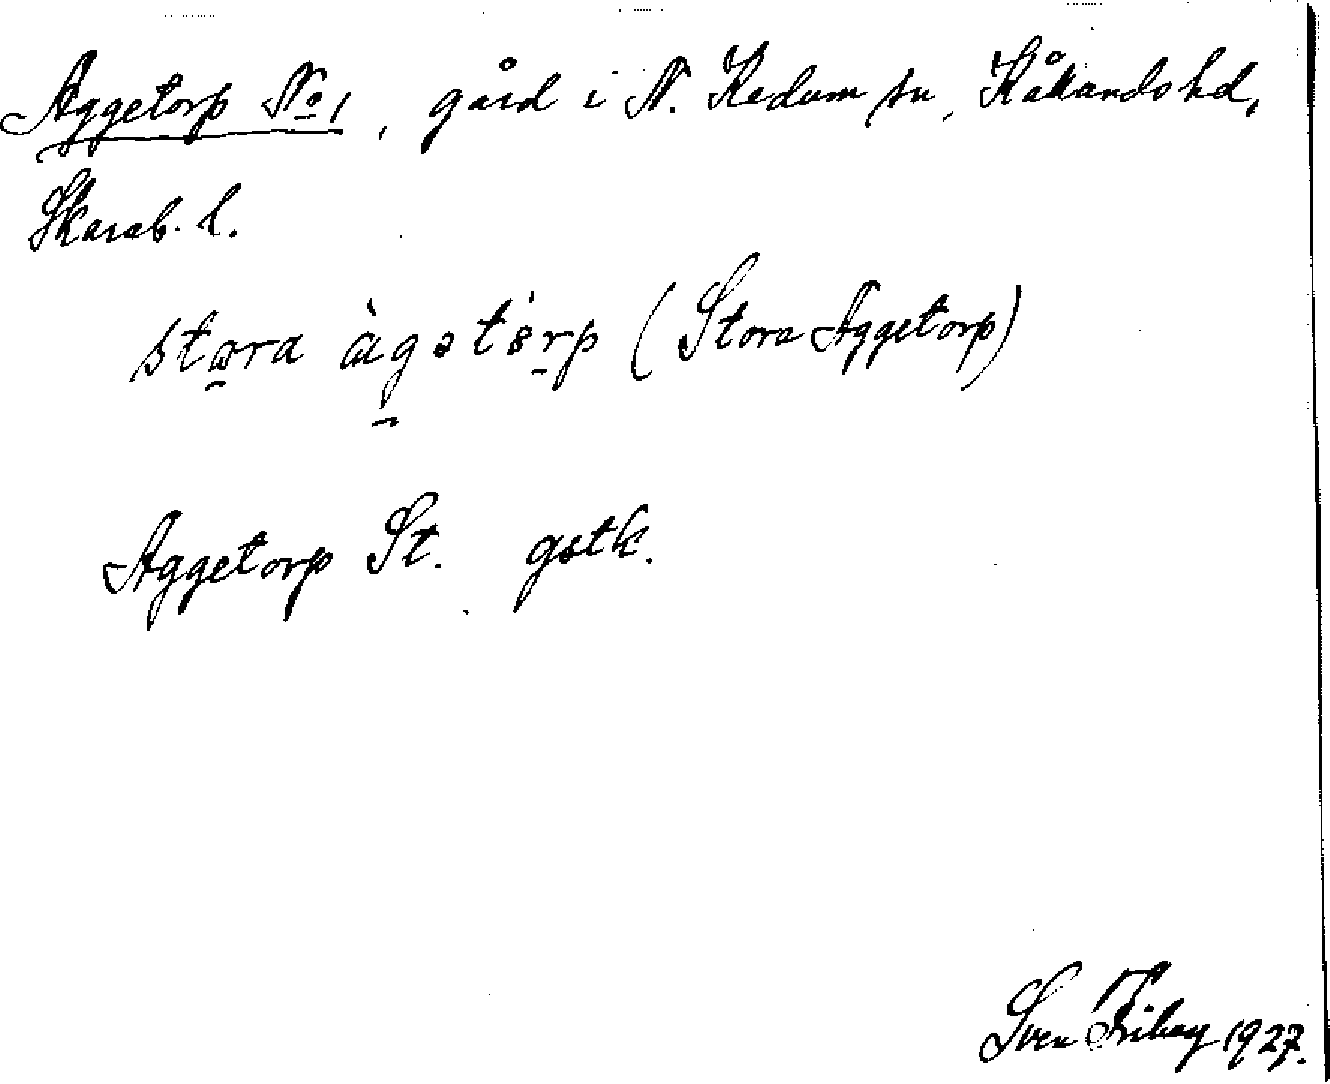 Aggetorp No 1, gård i N. Kedum sn, Kållands hd,
Skarab. l.
stora àgətôrp (Stora Aggetorp)
Aggetorp St. gstk.
Sven Friberg 1927.